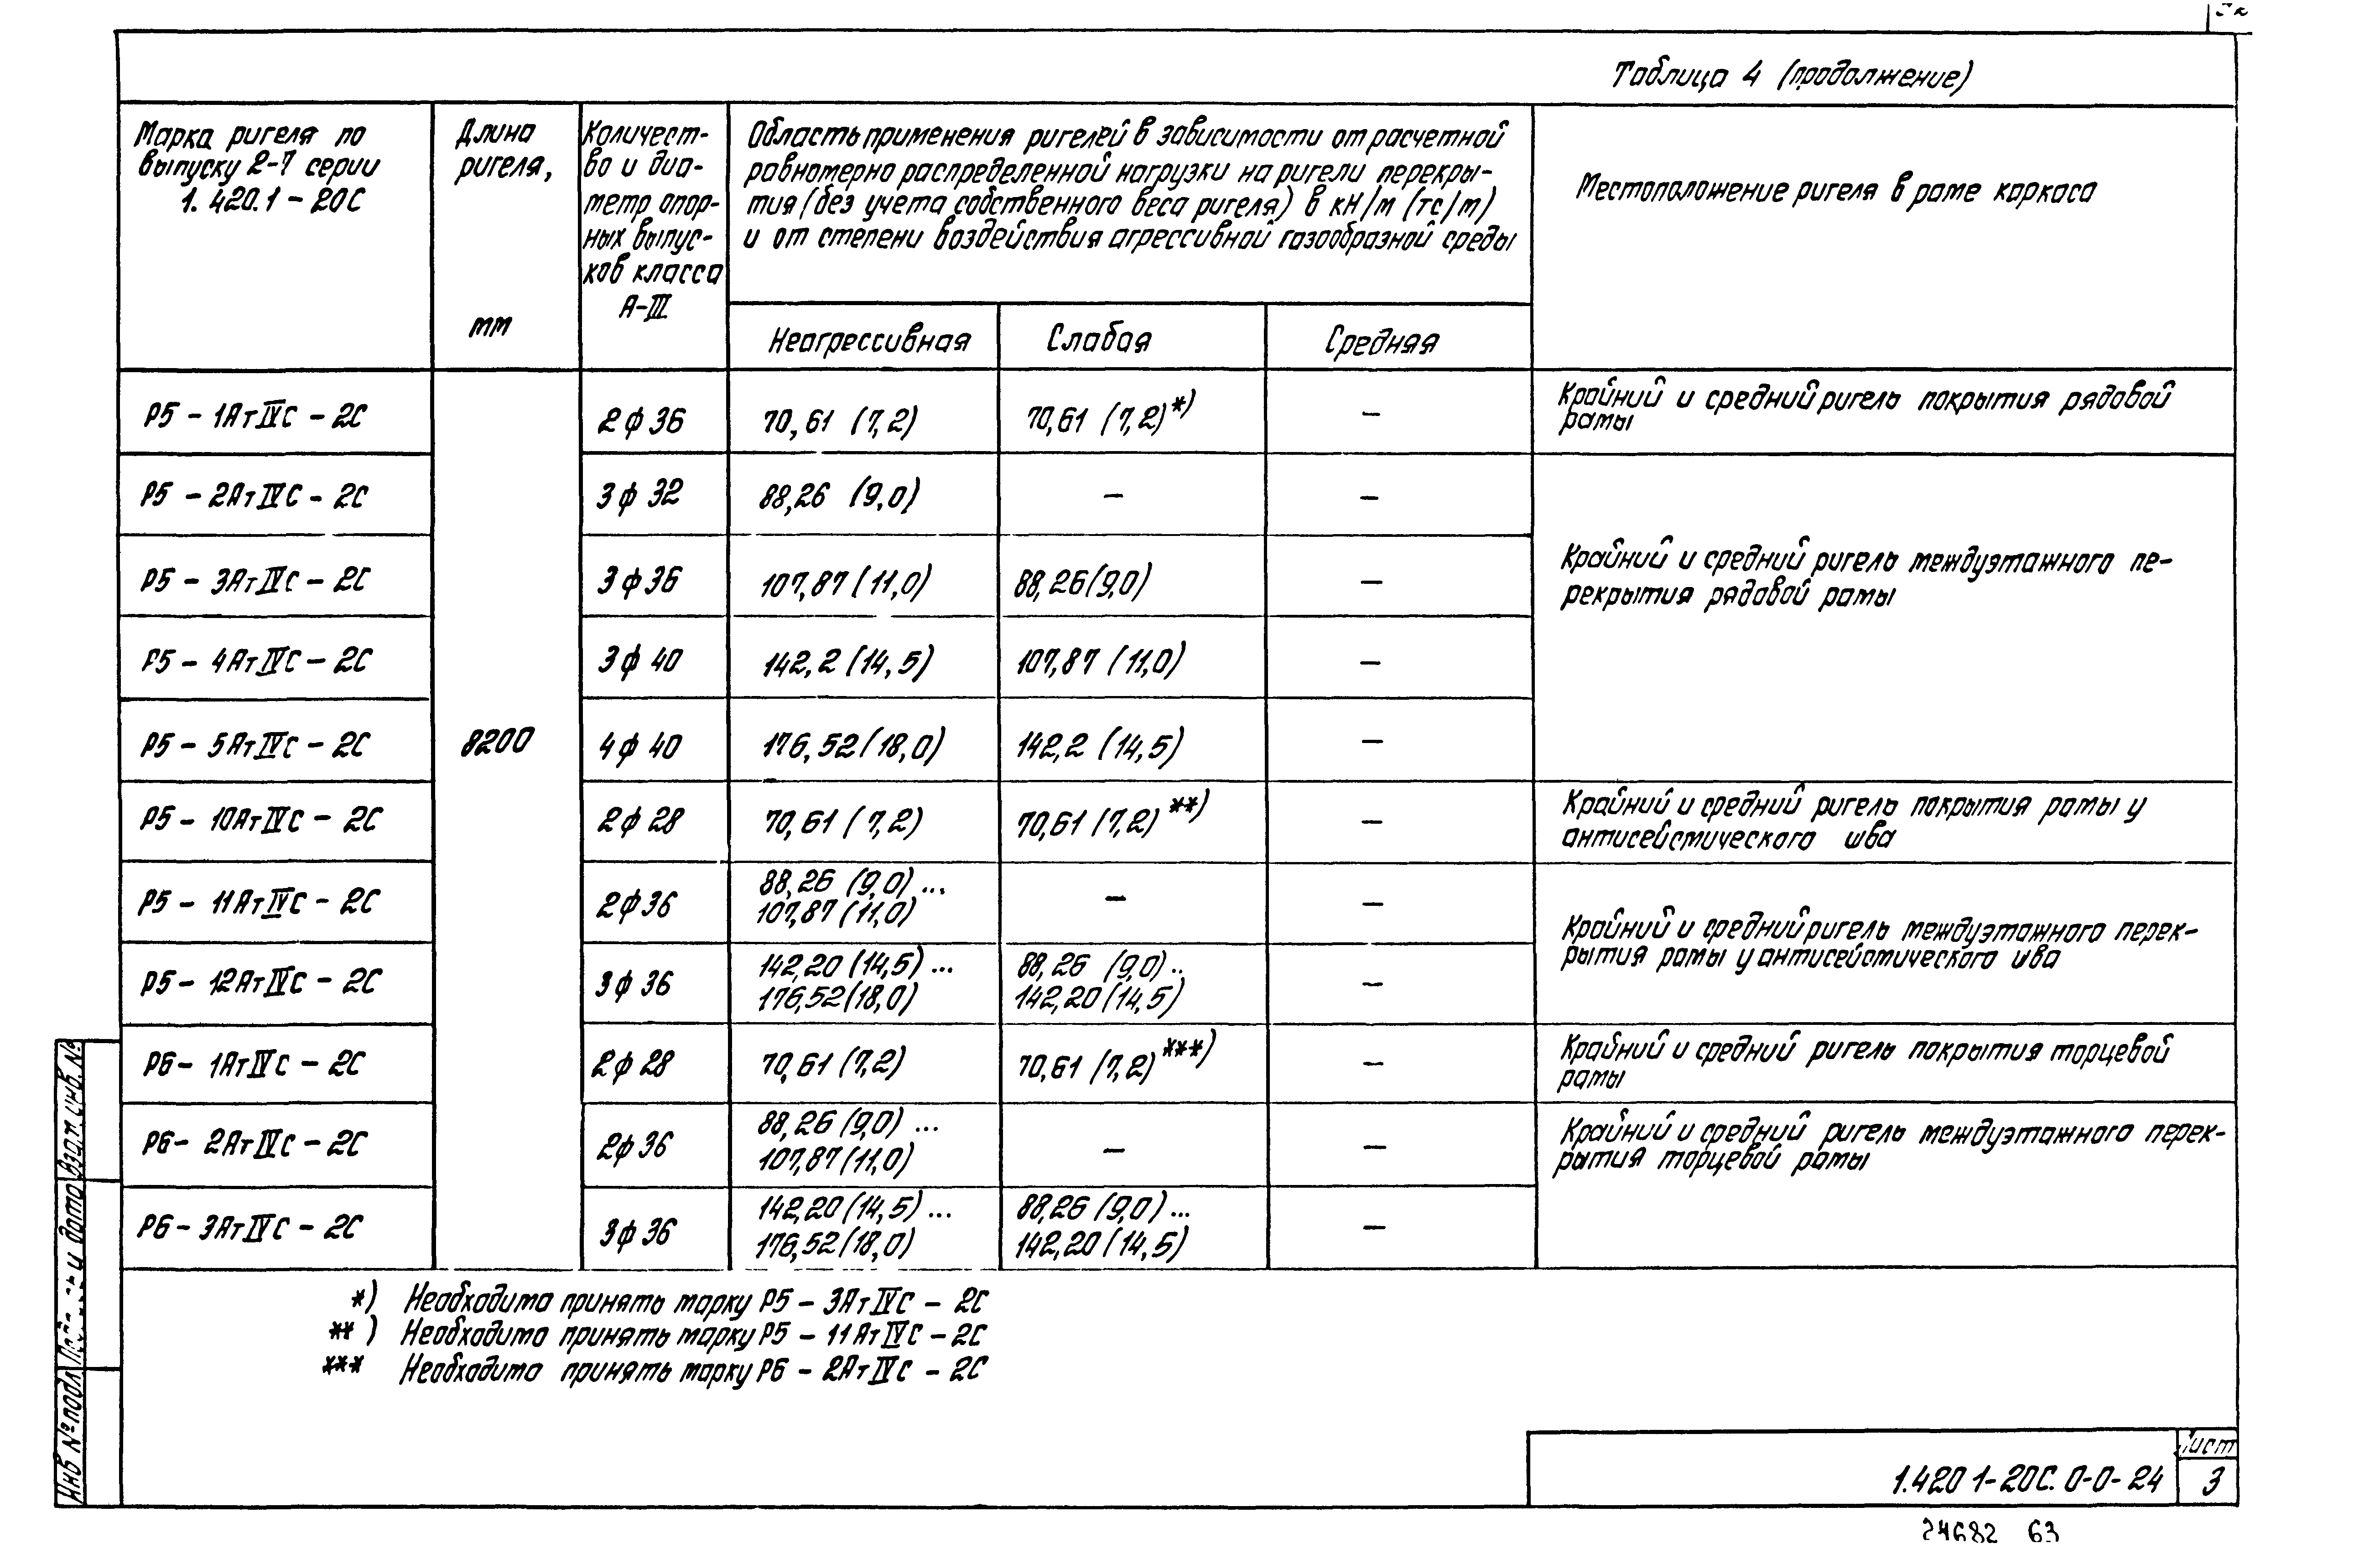 Таблица 4 (продолжение)
Марка ригеля по
выпуску 2-7 серии
1.420.1-20С
Длина
ригеля,
мм
Количест-
во и диа-
метр опор-
ных выпус-
ков класса
А-III
Область применения ригелей в зависимости от расчетной
равномерно распределенной нагрузки на ригели перекры-
тия (без учета собственного веса ригеля) в кН/м (тс/м)
и от степени воздействия агрессивной газообразной среды
Неагрессивная
Слабая
Средняя
Местоположение ригеля в раме каркаса
Р5 - 1АтIVС - 2С
2ф36
70,61 (7,2)
70,61 (7,2)*)
—
Крайний и средний ригель покрытия рядовой
рамы
Р5 - 2АтIVС - 2С
3ф32
88,26 (9,0)
—
—
Р5 - 3АтIVС - 2С
3ф36
107,87 (11,0)
88,26 (9,0)
—
Крайний и средний ригель междуэтажного пе-
рекрытия рядовой рамы
Р5 - 4АтIVС - 2С
3ф40
142,2 (14,5)
107,87 (11,0)
—
Р5 - 5АтIVС - 2С
8200
4ф40
176,52 (18,0)
142,2 (14,5)
—
Р5 - 10АтIVС - 2С
2ф28
70,61 (7,2)
70,61 (7,2)**)
—
Крайний и средний ригель покрытия рамы у
антисейсмического шва
Р5 - 11АтIVС - 2С
2ф36
88,26 (9,0)...
107,87 (11,0)
—
—
Крайний и средний ригель междуэтажного перек-
рытия рамы у антисейсмического шва
Р5 - 12АтIVС - 2С
3ф36
142,20 (14,5)...
176,52 (18,0)
88,26 (9,0)..
142,20 (14,5)
—
Р6 - 1АтIVС - 2С
2ф28
70,61 (7,2)
70,61 (7,2)***)
—
Крайний и средний ригель покрытия торцевой
рамы
Р6 - 2АтIVС - 2С
2ф36
88,26 (9,0)...
107,87 (11,0)
—
—
Крайний и средний ригель междуэтажного перек-
рытия торцевой рамы
Р6 - 3АтIVС - 2С
3ф36
142,20 (14,5)...
176,52 (18,0)
88,26 (9,0)...
142,20 (14,5)
—
*) Необходимо принять марку Р5 - 3АтIVС - 2С
**) Необходимо принять марку Р5 - 11АтIVС - 2С
*** Необходимо принять марку Р6 - 2АтIVС - 2С
Инв № подл
и дата
Взам. инв. №
1.420 1-20С. 0-0-24
Лист
3
24682 63